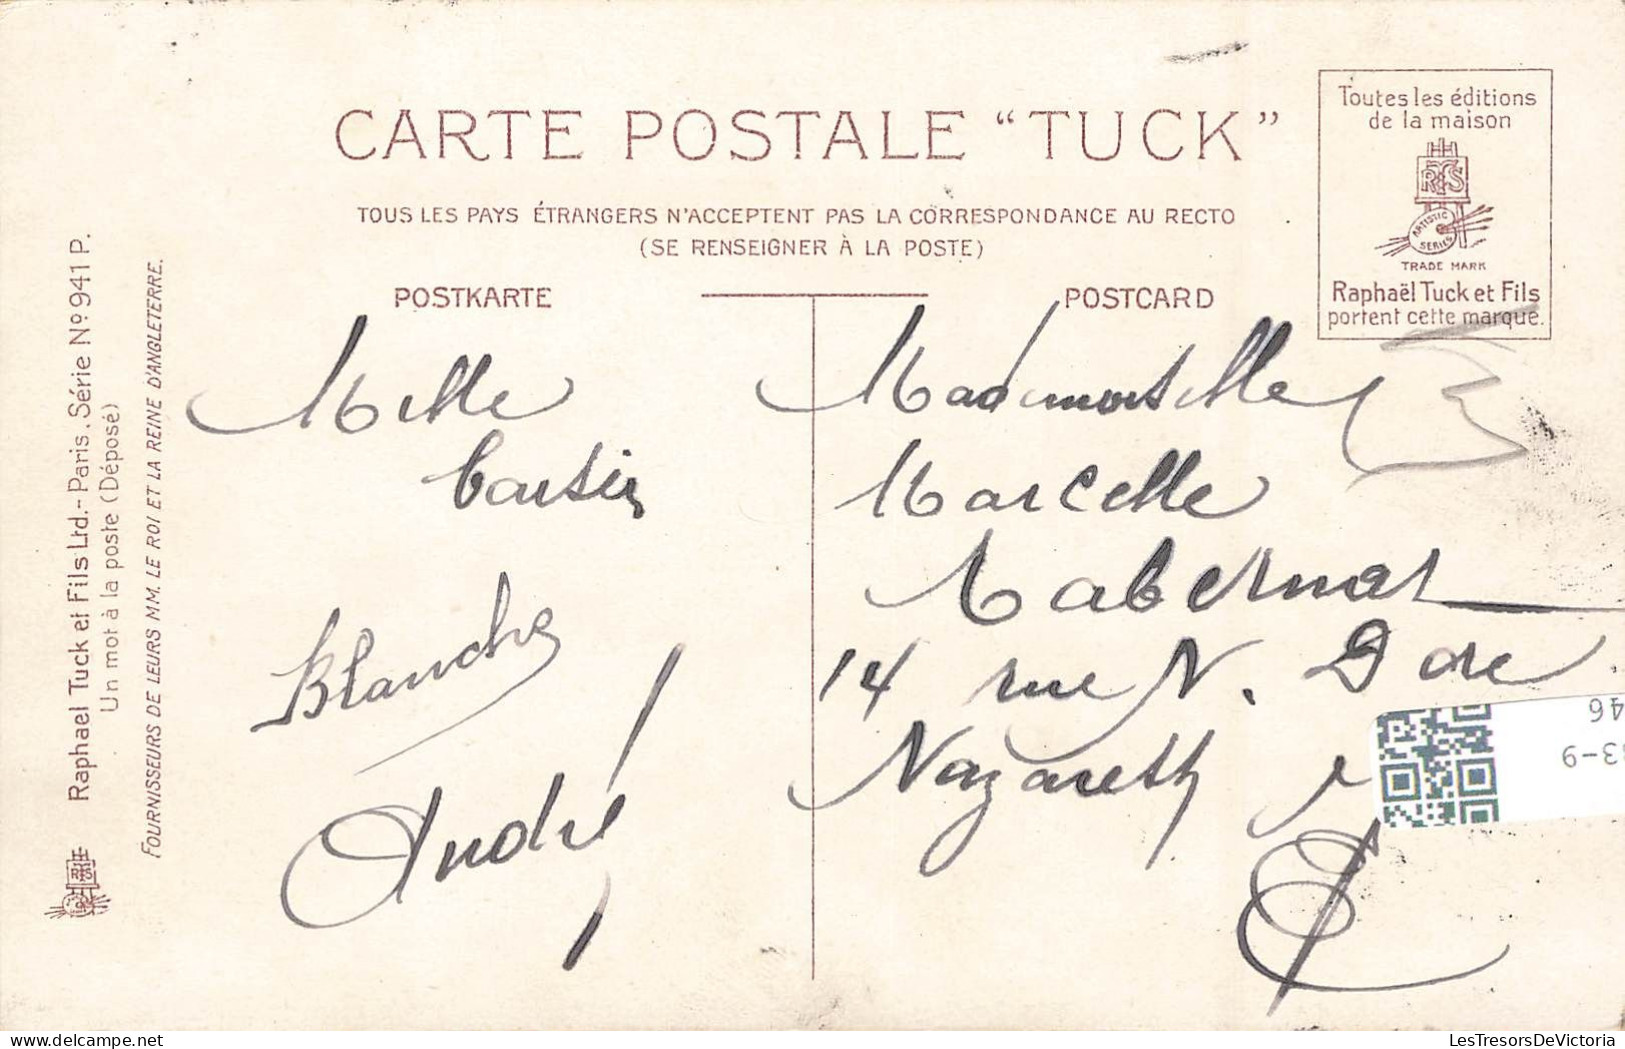 CARTE POSTALE “TUCK”
TOUS LES PAYS ÉTRANGERS N'ACCEPTENT PAS LA CORRESPONDANCE AU RECTO
(SE RENSEIGNER À LA POSTE)
Toutes les éditions
de la maison
RTS
ARTISTIC
SERIES
TRADE MARK
Raphaël Tuck et Fils
portent cette marque.
Raphael Tuck et Fils Ltd.-Paris. Série No. 941 P.
Un mot à la poste (Déposé)
FOURNISSEURS DE LEURS MM. LE ROI ET LA REINE D'ANGLETERRE.
POSTKARTE
POSTCARD
Melle
Blanche
André
Mademoiselle
Marcelle
Tabernar
14 rue N. Dore
Nazareth
46
33-9
LesTresorsDeVictoria